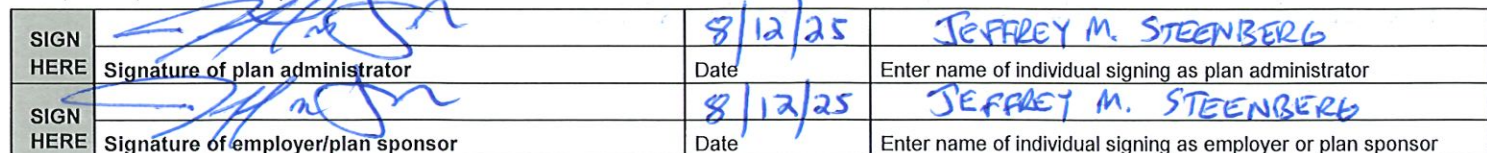 SIGN HERE 8/12/25 JEFFREY M. STEENBERG
Signature of plan administrator Date Enter name of individual signing as plan administrator
SIGN HERE 8/12/25 JEFFREY M. STEENBERG
Signature of employer/plan sponsor Date Enter name of individual signing as employer or plan sponsor